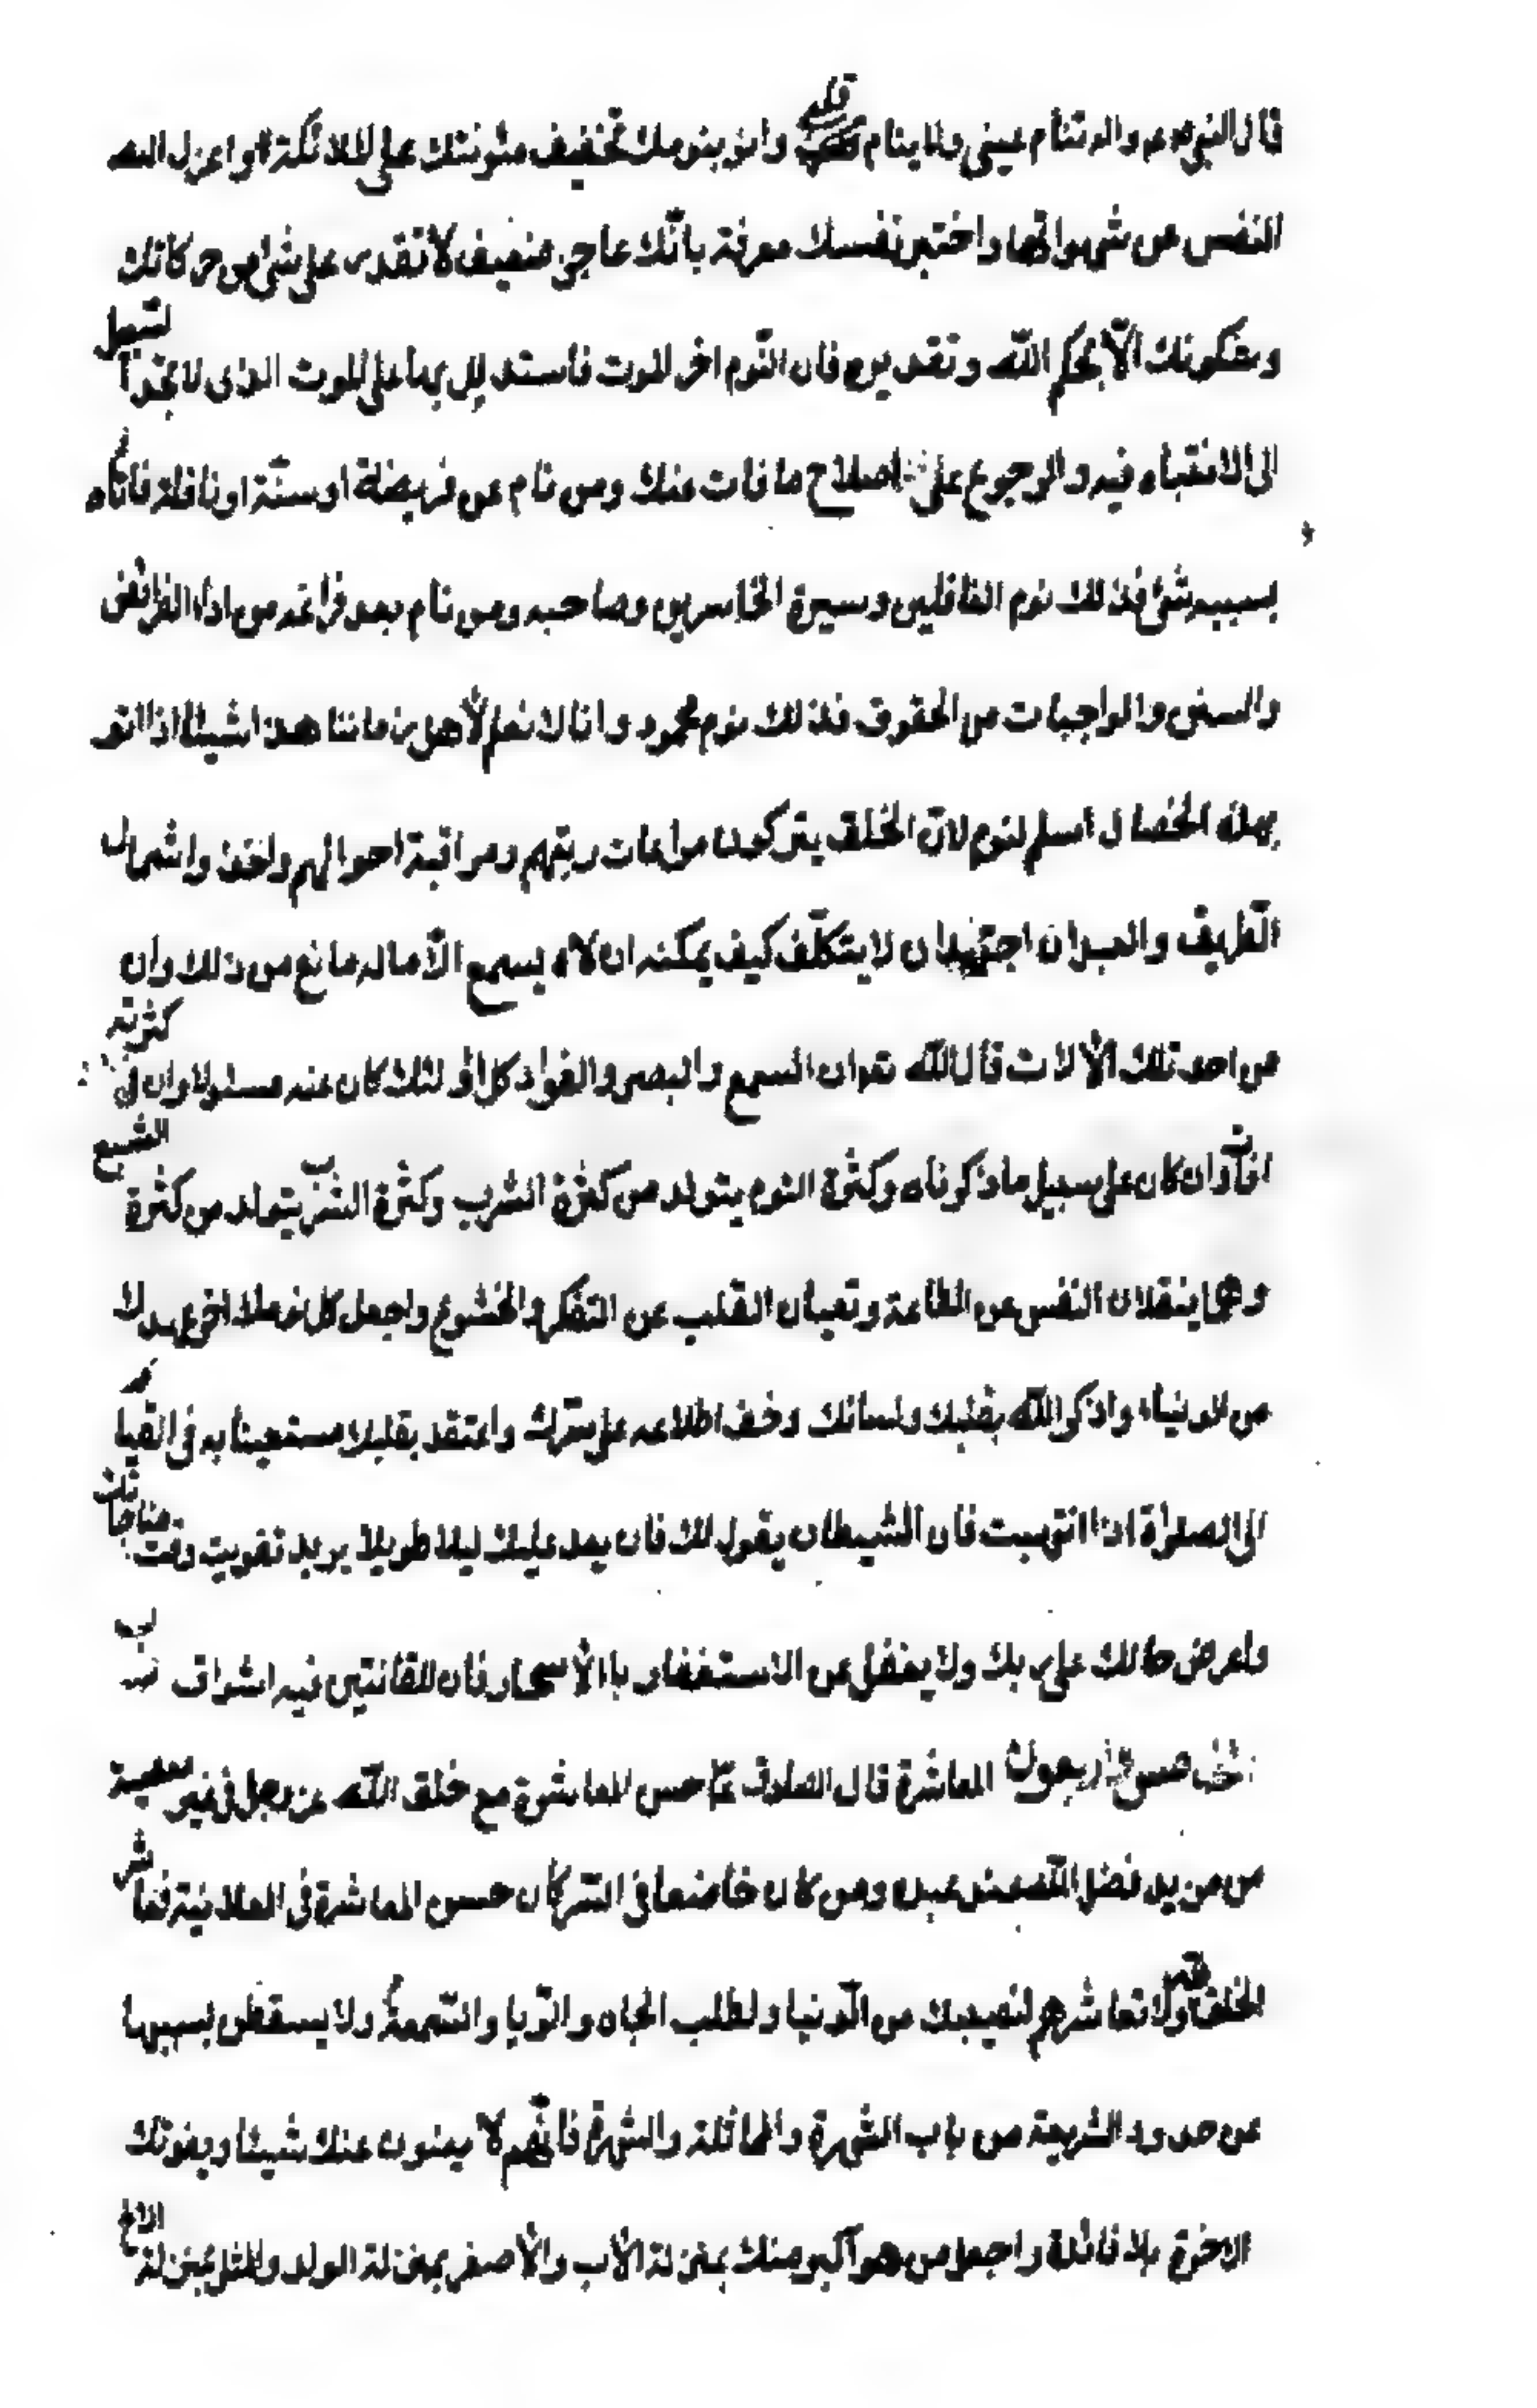 قال النبي ع م واله تنام عيني ولا ينام قلبي وانو بنومك تخفيف مئونتك على الملائكة واعزل الله
النفس عن شهواتها واختبر نفسك معرفة بانّك عاجز ضعيف لا تقدر على شئ من حركاتك
وسكونك الّا بحكم الله وتقديره فان النّوم اخ الموت فاستدلل بها على الموت الذي لا تجد السبيل
الى الانتباه فيه والرجوع على اصلاح ما فات عنك ومن نام عن فريضة او سنّة او نافلة فاته
بسببه شئ فذلك نوم الغافلين وسيرة الخاسرين وصاحبه ومن نام بعد فراغه من اداء الفرائض
والسنن والواجبات من الحقوق فذلك نوم محمود وانا لا نعلم لأهل زماننا هذا شيئا اذا اتو
بهذه الخصال اسلم لنوم لانّ الخلق يتركون مراعات ربّهم ومراقبة احوالهم واخذ واشمال
الطريف والعبدان اجتهد ان لا يتكلّف كيف يمكنه ان لا يسمع الّا ما له مانع من ذلك وان
من احد تلك الألات قال الله تع ان السمع والبصر والفؤاد كل أولئك كان عنه مسئولا وان في كثرته
افات وان كان على سبيل ما ذكرناه وكثرة النوم يتولد من كثرة الشرب وكثرة الشرب يتولد من كثرة الشبع
وهما يثقلان النفس عن الطاعة وتعيان القلب عن التفكر والخشوع واجعل كل نومك اخر عهدك
من الدنيا واذكر الله بقلبك ولسانك وخف اطلاعه على سرّك واعتقد بقلبك مستعينا به في القيام
الى الصلوة اذا انتهبت فان الشيطان يقول لك فان بعد عليك ليلا طويلا يريد تفويت وقت مناجاتك
واعرض حالك على ربك ولا يغفل عن الاستغفار بالأسحار فان للقانتين فيه اشواق
المعاشرة قال الصادق ع حسن المعاشرة مع خلق الله عز وجل في غير معصية
من مزيد فضل الله عند عبده ومن كان خاضعا في السّر كان حسن المعاشرة في العلانية فعاشر
الخلق ولا تعاشرهم لنصيبك من الدّنيا ولطلب الجاه والرّيا والسّمعة ولا يسقطن بسببها
عن حدود الشريعة من باب الشهرة والمماثلة والشهرة فانّهم لا يغنون عنك شيئا ويفوتك
الاخرة بلا فائدة واجعل من هو اكبر منك بمنزلة الأب والأصغر بمنزلة الولد والمثل بمنزلة الاخ